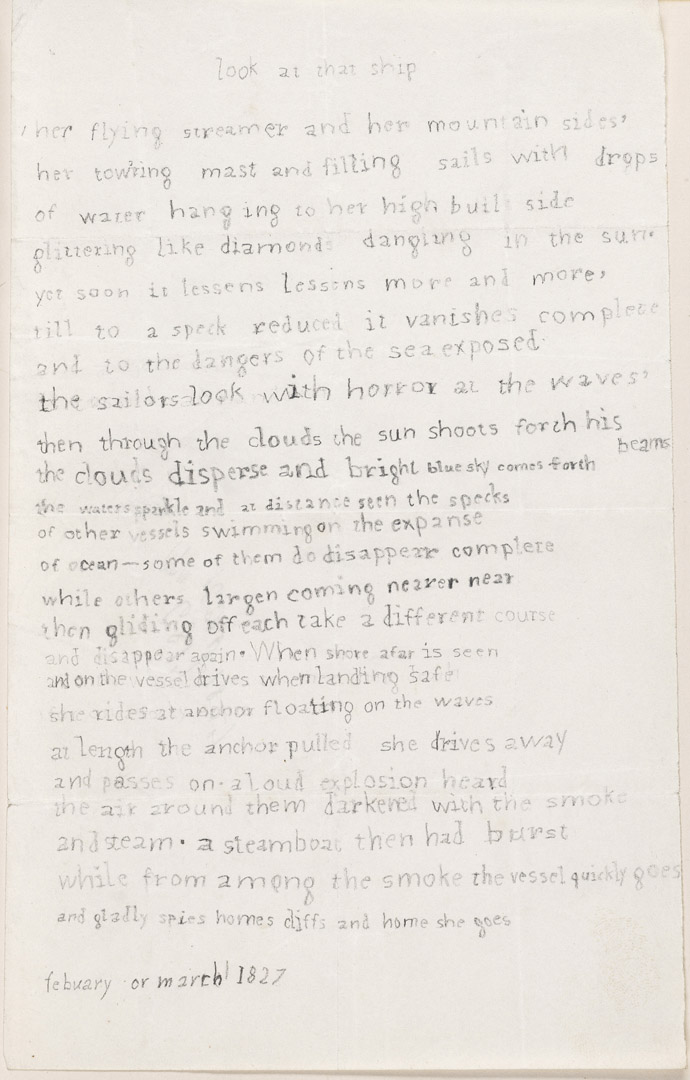 look at that ship
her flying streamer and her mountain sides,
her tow'ring mast and filling sails with drops
of water hanging to her high buil side
glittering like diamonds dangling in the sun.
yet soon it lessens lessens more and more,
till to a speck reduced it vanishes complete
and to the dangers of the sea exposed
the sailors look with horror at the waves,
then through the clouds the sun shoots forth his
beams
the clouds disperse and bright blue sky comes forth
the waters sparkle and at distance seen the specks
of other vessels swimming on the expanse
of ocean—some of them do disappear complete
while others largen coming nearer near
then gliding off each take a different course
and disappear again. When shore afar is seen
and on the vessel drives when landing safe
she rides at anchor floating on the waves
at length the anchor pulled she drives away
and passes on. a loud explosion heard
the air around them darkened with the smoke
and steam. a steamboat then had burst
while from among the smoke the vessel quickly goes
and gladly spies homes cliffs and home she goes
febuary or march 1827